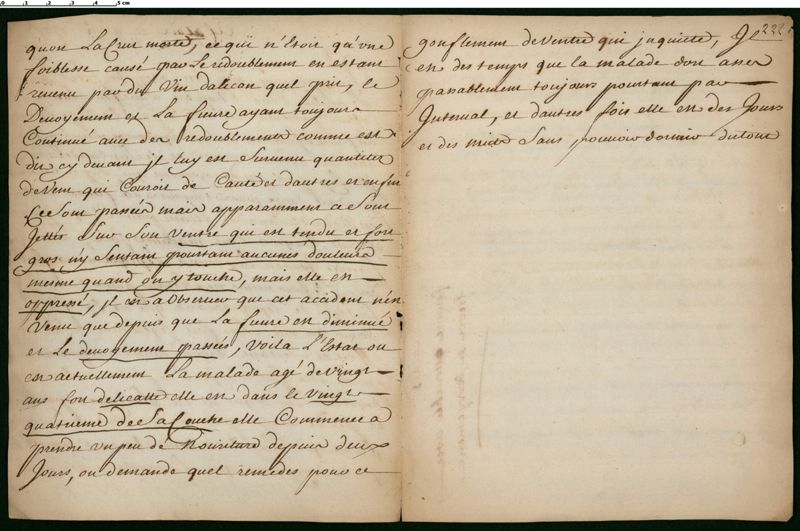 quon La Crut morte, ce qui n'Etoit qu'une
foiblesse causé par Le redoublement en estant
revenu par du Vin dalicon quel prit, le
Devoyement et La fievre ayant toujours
Continué avec des redoublements comme est
dit cy devant jl luy est Survenu quantitez
de Vent qui Couroit de Cauté et dautres et enfin
Ce Sont passées mais apparamment ce Sont
Jettés Sur Son Ventre qui est tendu et fort
gros n'y Sentant pourtant aucunes douleurs
mesme quand on y touche, mais elle en
oppressé, jl est a Observer que cet accident n'en
Venu que depuis que La fievre en diminué
et Le devoyement passées, Voila L'Estat ou
en actuellement La malade agé de Vingt
ans fort delicatte elle en dans le Vingt
quatrieme de Sa Couche elle Commence a
prendre un peu de Nouriture depuis deux
Jours, on demande quel remedes pour ce
222
gonflement de Ventre qui jnquiette, Jl
en des temps que la malade dort assez
passablement toujours pourtant par
Jnterval, et dautres fois elle en des Jours
et des nuits Sans pouvoir dormir du tout